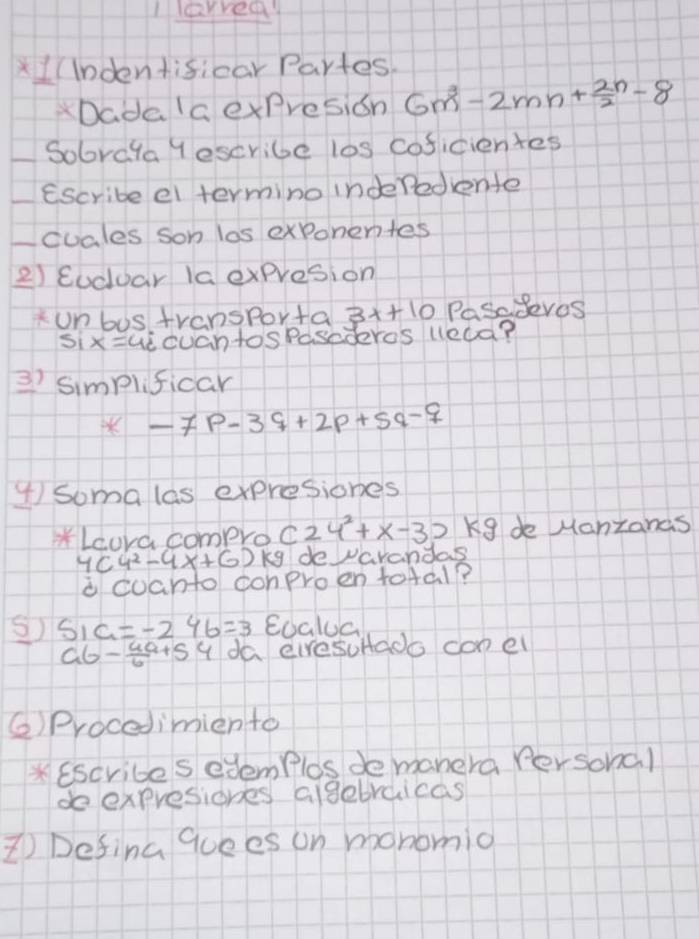 1 Tarrea!
*1) Indentificar Partes.
*Dada la expresión 6m³ - 2mn + 2n/2 - 8
- Sobraya y escribe los coficientes
- Escribe el termino indepediente
- cuales son los exponentes
2) Evaluar la expresion
*un bus transporta 3x+10 Pasajeros
si x=4¿cuantos pasajeros lleca?
3) Simplificar
* -7P-3q+2p+5q-q
4) Soma las expresiones
*Laura compro (2y²+x-3) kg de Manzanas
y (y²-4x+6) kg de narandas
¿ cuanto conpro en total?
5) Si a=-2 y b=3 Evalua
ab - 4a/6 + 5 y da el resultado con el
6) Procedimiento
*Escribe 5 ejemplos de manera Personal
de expresiones algebraicas
7) Defina que es un monomio